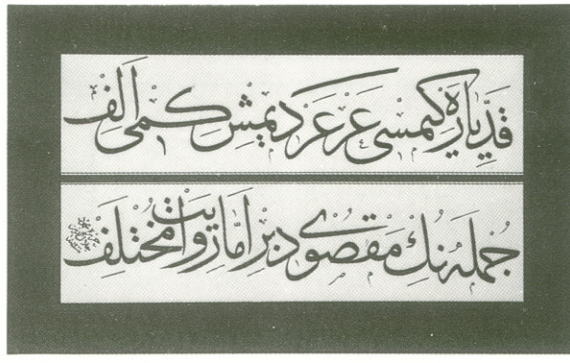 قدّ ياره كيمسى عرعر ديمش كمى الف
جمله‌نك مقصودى بر اما روايت مختلف